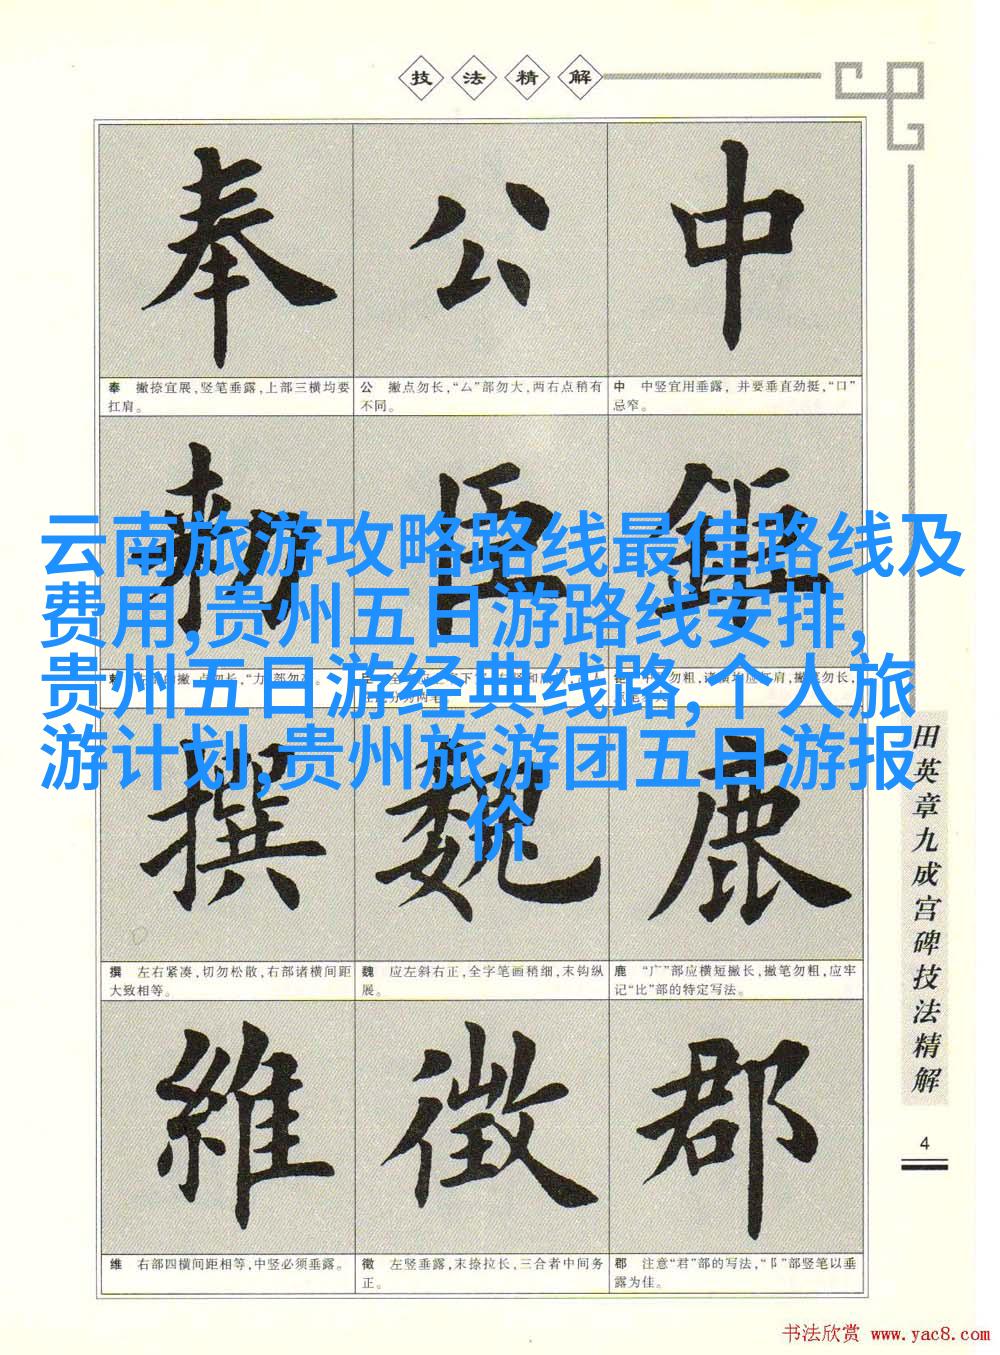 技法精解
奉 公 中
奉 撇捺宜展，竖笔垂露，上部三横均要
扛肩。
公 撇点勿长，“厶”部勿大，两右点稍有
不同。
中 中竖宜用垂露，并要垂直劲挺，“口”
忌窄。
云南旅游攻略路线最佳路线及
费用,贵州五日游路线安排,
贵州五日游经典线路,个人旅
游计划,贵州旅游团五日游报
价
撰 魏 鹿
撰 左右紧凑，切勿松散，右部诸横间距
大致相等。
魏 应左斜右正，全字笔画稍细，末钩纵
展。
鹿 “广”部应横短撇长，撇笔勿粗，应牢
记“比”部的特定写法。
維 徵 郡
维 右部四横间距相等，中竖必须垂露。
徵 左竖垂露，末捺拉长，三合者中间务
正。
郡 注意“君”部的写法，“阝”部竖笔以垂
露为佳。
田英章九成宫碑技法精解
4
书法欣赏 www.yac8.com